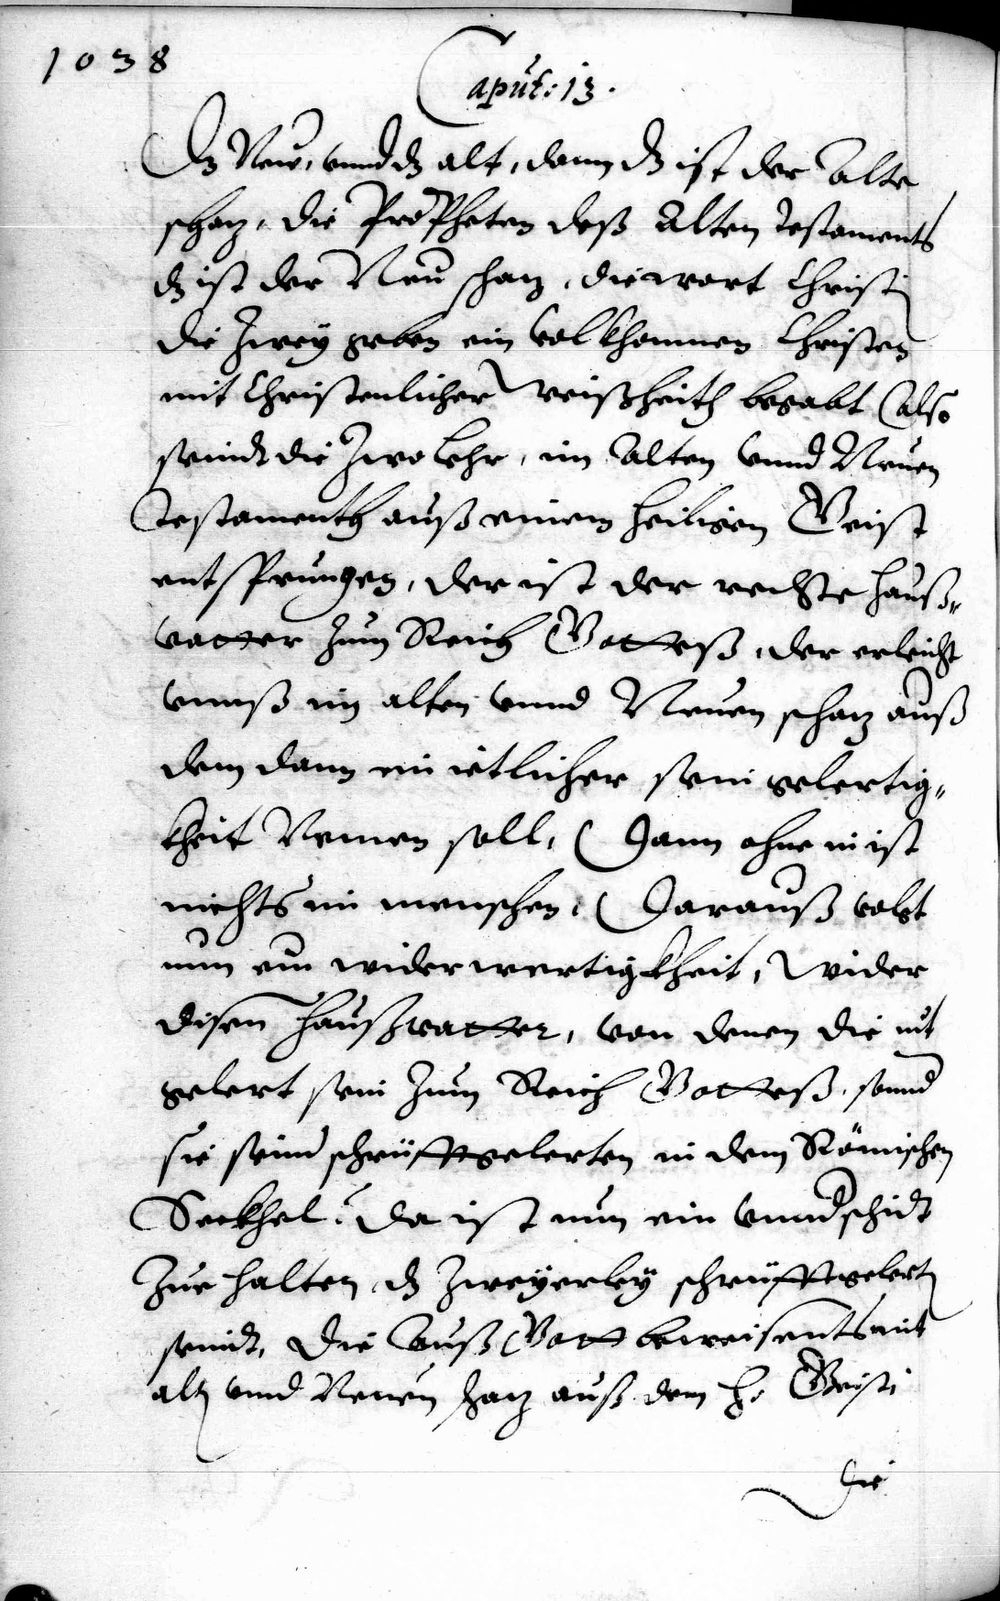 1038
Caput: 13.
Dz New, vnnd dz alt, dann dz ist der Alte
schatz, die Propheten deß Alten Testaments
dz ist der Neu schatz, die wort Christi
die zwey geben ein volkhomnen Christen
mit Christenlicher weißheith begabt also
seindt die zwo lehr, im alten vnnd Neuen
Testamenth auß einem heiligen Geist
entsprungen, der ist der rechte hauß-
vatter zum Reich Gotteß, der erleicht
vnnß im alten vnnd Neuen schatz auß
dem dann ein ietlicher sein gelertig-
kheit Nemen soll, Dann ohne in ist
nichts im menschen, Darauß volgt
nun ein widerwertigkheit, wider
disen haußvatter, von denen die nit
gelert sein zum Reich Gotteß, sonnd
sie seind schrüfftgelerten in dem Römischen
Seckhel. Da ist nun ein vnndschidt
zue halten dz zweyerley schrüfftgelert
seindt, Die auß Gott beweisents mit
alt vnnd Neuen schatz auß dem h. Geist
die